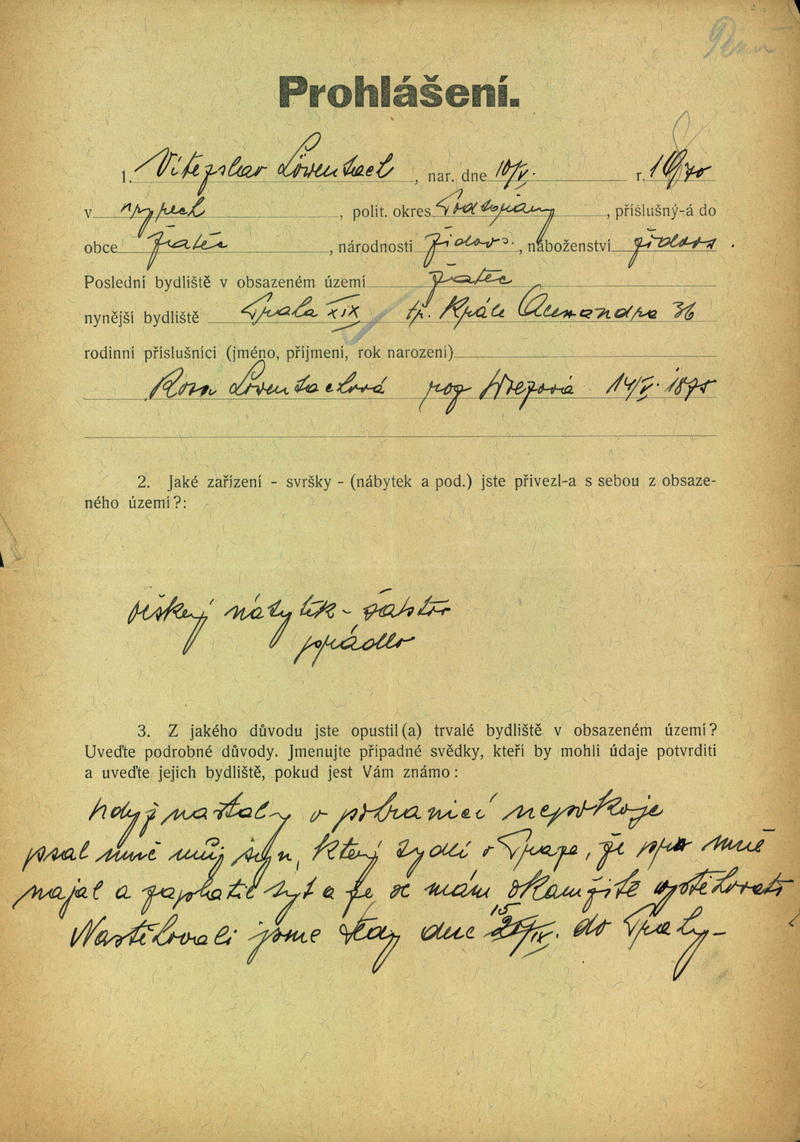 Prohlášení.
1. Vítězslav Löwenbach, nar. dne 10/V. r. 1870
v, polit. okres, příslušný-á do
obce Žatec, národnosti židovs., náboženství židovs.
Poslední bydliště v obsazeném území Žatec
nynější bydliště Praha XIX tř. Krále Alexandra 36
rodinní příslušníci (jméno, příjmení, rok narození)
Rosa Löwenbachová roz 14/V. 1875
2. Jaké zařízení - svršky - (nábytek a pod.) jste přivezl-a s sebou z obsaze-
ného území?:
nábytek - šatstvo
prádlo
3. Z jakého důvodu jste opustil(a) trvalé bydliště v obsazeném území?
Uveďte podrobné důvody. Jmenujte případné svědky, kteří by mohli údaje potvrditi
a uveďte jejich bydliště, pokud jest Vám známo:
Když nastaly v pohraničí nepokoje
psal mně můj syn, který bydlí v Praze, že pro mně
najal a zaplatil byt a že se mám okamžitě vystěhovati
Nastěhovali jsme tedy dne 15/IX. do Prahy-